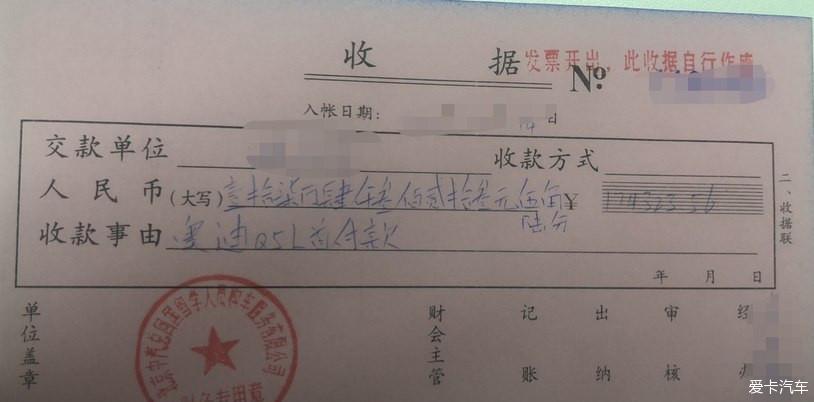 收 据
发票开出，此收据自行作废
№
入帐日期： 14 日
交款单位 收款方式
人民币(大写) 壹拾柒万肆仟叁佰贰拾叁元伍角陆分 ¥ 174323.56
收款事由 奥迪Q5L首付款
二、收据联
年 月 日
单位盖章 财会主管 记账 出纳 审核 经办
留学人员购车服务有限公司
财务专用章
爱卡汽车